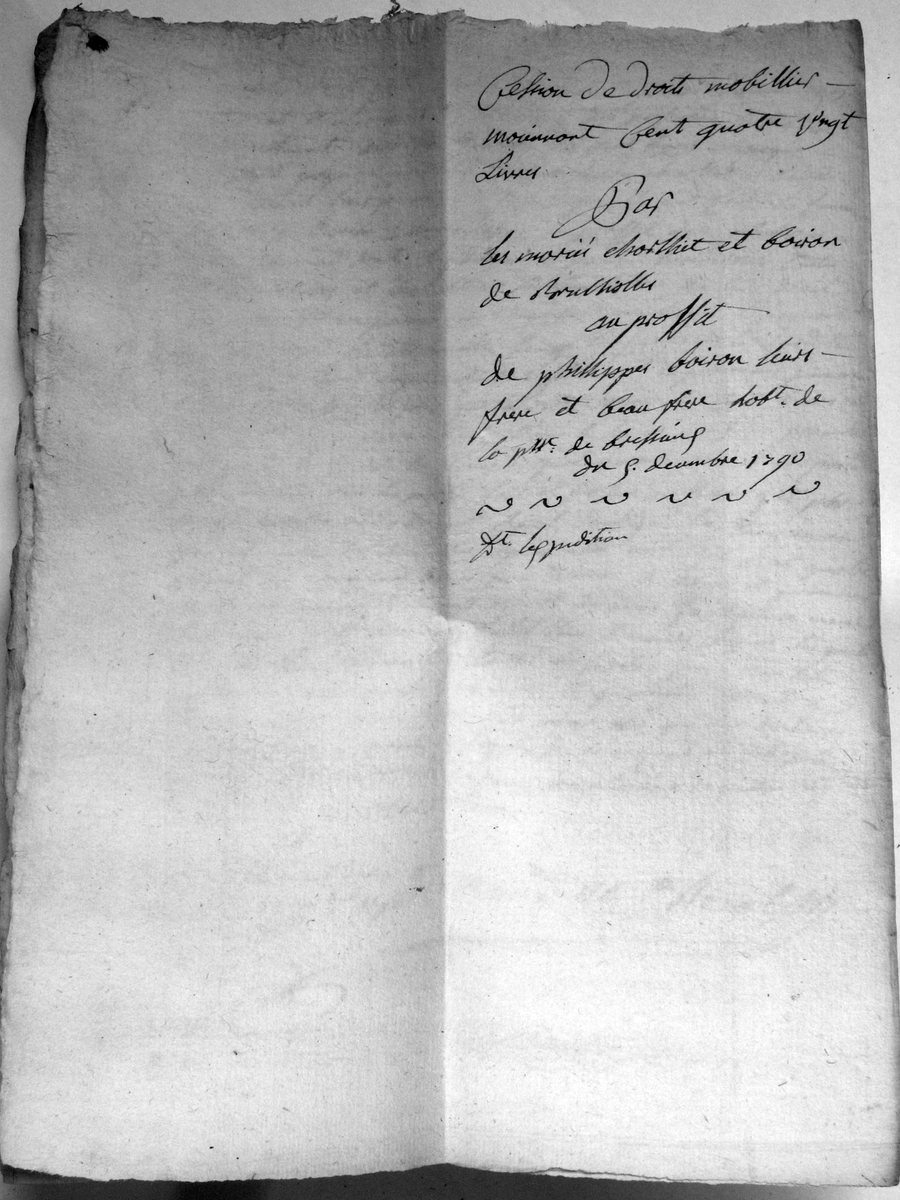 Cession de droits mobilliers
moiennant Cent quatre Vingt
Livres
Par
les mariés et boiron
de
au proffit
de philippes boiron leurs
frere et beau frere habt. de
la psse. de bressieux
du 5. decembre 1790
Dt. lexpedition